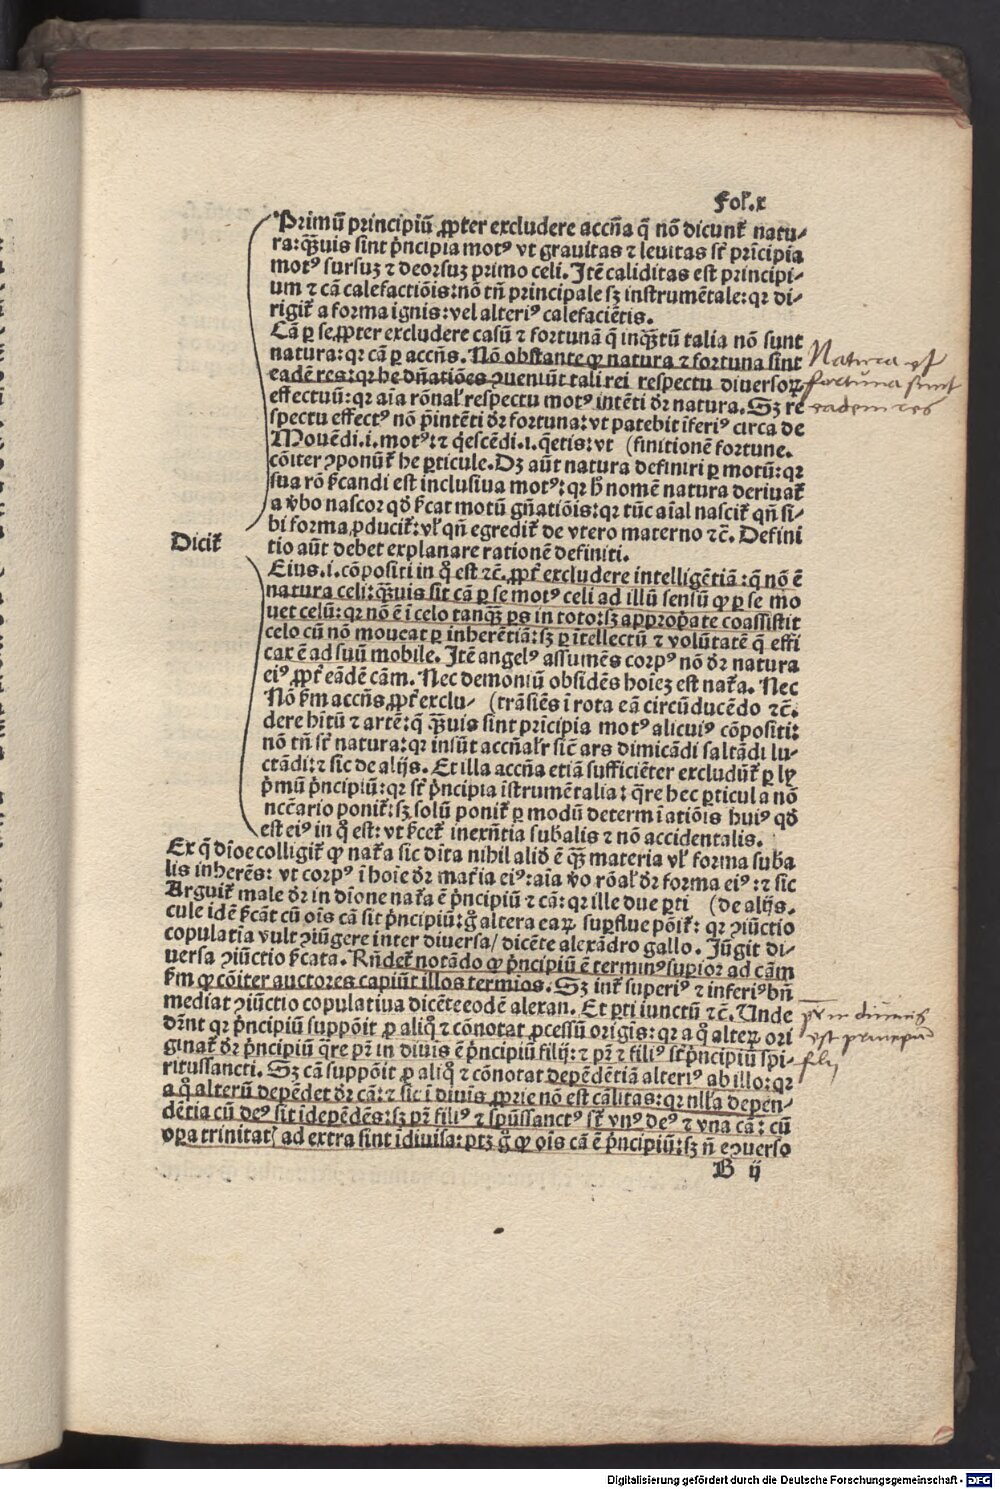 Fol.x
Primũ principiũ ꝓpter excludere accña q̃ nõ dicunt᷑ natu⸗
ra:qꝫuis sint p̃ncipia motꝰ vt grauitas ⁊ leuitas st̃ prĩcipia
motꝰ sursuꝫ ⁊ deorsuꝫ primo celi. Itẽ caliditas est principi⸗
um ⁊ cã calefactiõis:nõ tñ principale sꝫ instrumẽtale:qꝛ di⸗
rigit᷑ a forma ignis:vel alteriꝰ calefaciẽtis.
Cã ꝑ se ꝓpter excludere casũ ⁊ fortunã q̃ inqꝫtũ talia nõ sunt
natura:qꝛ cã ꝑ accñs. Nõ obstante ꝙ natura ⁊ fortuna sint
eadẽ res:qꝛ he dñatiões ꝯueniũt tali rei respectu diuersoꝝ
effectuũ:qꝛ aĩa rõnal᷑ respectu motꝰ intẽti dr̃ natura. Sꝫ re
spectu effectꝰ nõ p̃intẽti dr̃ fortuna:vt patebit ĩferiꝰ circa de
Mouẽdi.i.motꝰ:⁊ q̇escẽdi.i.q̇etis:vt (finitionẽ fortune.
cõiter ꝯponũt᷑ he ꝑticule. Dꝫ aũt natura definiri ꝑ motũ:qꝛ
sua rõ s̃candi est inclusiua motꝰ:qꝛ h̃ nomẽ natura deriuat᷑
a v̾bo nascor qd̾ s̃cat motũ gñatiõis:qꝛ tũc aĩal nascit᷑ qñ si⸗
bi forma ꝓducit᷑:vl᷑ qñ egredit᷑ de vtero materno ⁊c̃. Defini
tio aũt debet explanare rationẽ definiti.
Dicit᷑
Eius.i.cõpositi in q̊ est ⁊c̃. ꝓpt᷑ excludere intelligẽtiã:q̃ nõ ẽ
natura celi:qꝫuis sit cã ꝑ se motꝰ celi ad illũ sensũ ꝙ ꝑ se mo
uet celũ:qꝛ nõ ẽ ĩ celo tanqꝫ ꝑs in toto:sꝫ appropate coassistit
celo cũ nõ moueat ꝑ inherẽtiã:sꝫ ꝑ ĩtellectũ ⁊ volũtatẽ q̃ effi
cax ẽ ad suũ mobile. Itẽ angelꝰ assumẽs corpꝰ nõ dr̃ natura
eiꝰ ꝓpt᷑ eãdẽ cãm. Nec demoniũ obsidẽs hoĩeꝫ est nat᷑a. Nec
Nõ s̃m accñs ꝓpt᷑ exclu⸗ (trãsiẽs ĩ rota eã circũducẽdo ⁊c̃.
dere hĩtũ ⁊ artẽ:q̃ qꝫuis sint prĩcipia motꝰ alicuiꝰ cõpositi:
nõ tñ st̃ natura:qꝛ insũt accñal᷑r sic̃ ars dimicãdi saltãdi lu⸗
ctãdi:⁊ sic de alijs. Et illa accña etiã sufficiẽter excludũt᷑ ꝑ ly
p̃mũ p̃ncipiũ:qꝛ st̃ p̃ncipia ĩstrumẽtalia: q̃re hec ꝑticula nõ
ncc̃ario ponit᷑:sꝫ solũ ponit᷑ ꝑ modũ determĩatiõis huiꝰ qd̾
est eiꝰ in q̊ est: vt s̃cet᷑ inexñtia subalis ⁊ nõ accidentalis.
Ex q̃ dĩoe colligit᷑ ꝙ nat᷑a sic dĩta nihil alid̾ ẽ qꝫ materia vl᷑ forma suba
lis inherẽs: vt corpꝰ ĩ hoĩe dr̃ mat᷑ia eiꝰ:aĩa v̾o rõal᷑ dr̃ forma eiꝰ:⁊ sic
Arguit᷑ male dr̃ in dĩone nat᷑a ẽ p̃ncipiũ ⁊ cã:qꝛ ille due ꝑti (de alijs.
cule idẽ s̃cãt cũ oĩs cã sit p̃ncipiũ:g̊ altera eaꝝ suꝑflue põit᷑: qꝛ ꝯiũctio
copulatĩa vult ꝯiũgere inter diuersa/ dicẽte alexãdro gallo. Iũgit di⸗
uersa ꝯiũctio s̃cata. Rñdet᷑ notãdo ꝙ p̃ncipiũ ẽ terminꝰ supior ad cãm
s̃m ꝙ cõiter auctores capiũt illos termios. Sꝫ int᷑ superiꝰ ⁊ inferiꝰ bñ
mediat ꝯiũctio copulatiua dicẽte eodẽ alexan. Et ꝑti iunctũ ⁊c̃. Unde
dr̃nt qꝛ p̃ncipiũ suppõit ꝓ aliq̊ ⁊ cõnotat ꝓcessũ origis:qꝛ a q̊ alteꝝ ori
ginat᷑ dr̃ p̃ncipiũ q̃re pr̃ in diuis ẽ p̃ncipiũ filij:⁊ pr̃ ⁊ filiꝰ st̃ p̃ncipiũ spi⸗
ritussancti. Sꝫ cã suppõit ꝓ aliq̊ ⁊ cõnotat depẽdẽtiã alteriꝰ ab illo:qꝛ
a q̊ alterũ depẽdet dr̃ cã:⁊ sic ĩ diuis ꝓprie nõ est cãlitas:qꝛ nll᷑a depen⸗
dẽtia cũ deꝰ sit ĩdepẽdẽs:sꝫ pr̃ filiꝰ ⁊ spũssanctꝰ st̃ vnꝰ deꝰ ⁊ vna cã: cũ
oꝑa trinitat᷑ ad extra sint ĩdiuisa:ptꝫ g̊ ꝙ oĩs cã ẽ p̃ncipiũ:sꝫ ñ eꝯuerso
B ij
Natura et
fortuna sunt
eadem res
pr̃ in diuinis
est principiũ
filij
Digitalisierung gefördert durch die Deutsche Forschungsgemeinschaft - DFG